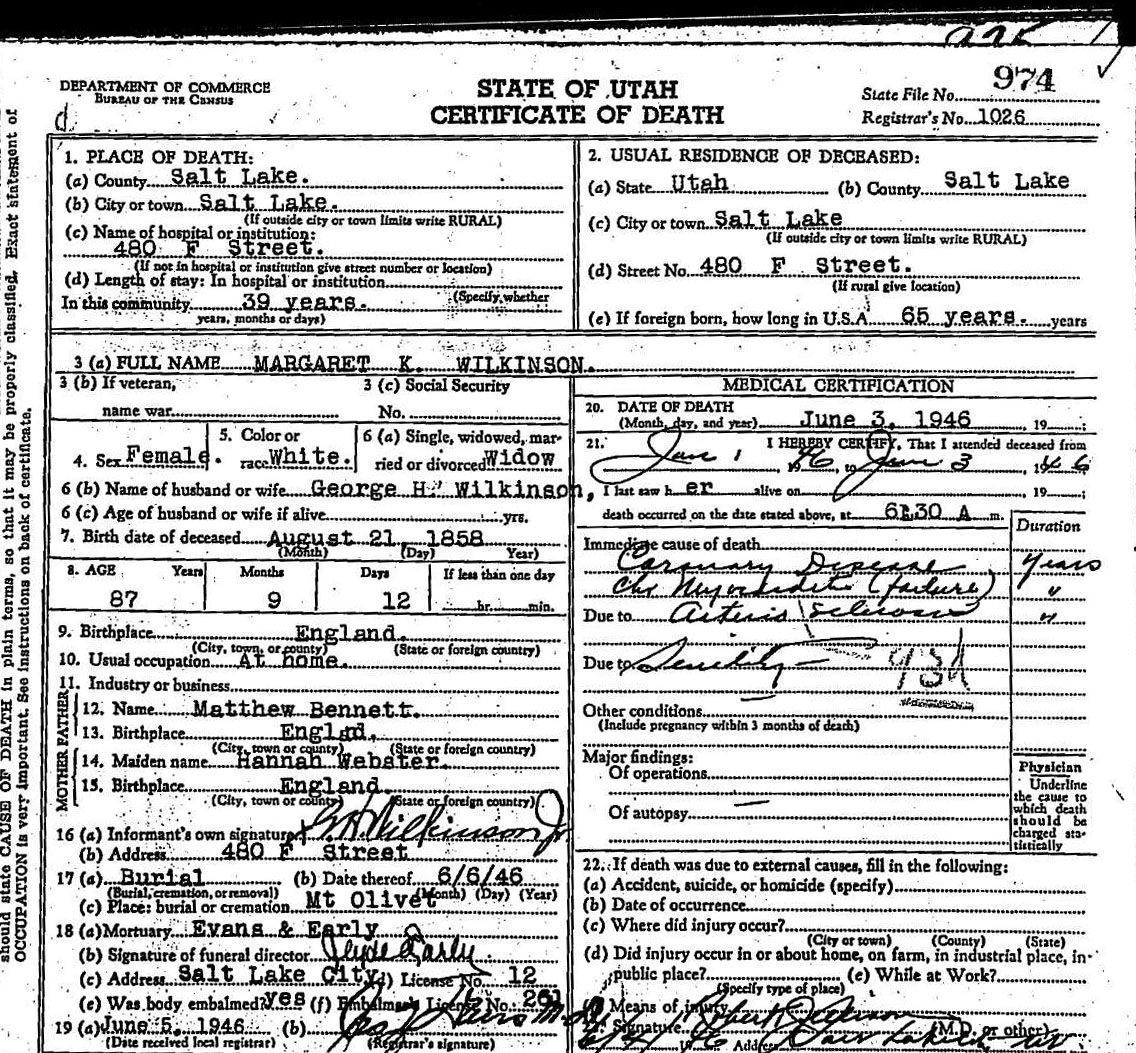 974
DEPARTMENT OF COMMERCE
BUREAU OF THE CENSUS
d
STATE OF UTAH
CERTIFICATE OF DEATH
State File No.
Registrar's No. 1026
should state CAUSE OF DEATH in plain terms, so that it may be properly classified. Exact statement of
OCCUPATION is very important. See instructions on back of certificate.
1. PLACE OF DEATH:
(a) County Salt Lake.
(b) City or town Salt Lake.
(If outside city or town limits write RURAL)
(c) Name of hospital or institution:
480 F Street.
(If not in hospital or institution give street number or location)
(d) Length of stay: In hospital or institution
(Specify whether
In this community 39 years.
years, months or days)
2. USUAL RESIDENCE OF DECEASED:
(a) State Utah (b) County Salt Lake
(c) City or town Salt Lake
(If outside city or town limits write RURAL)
(d) Street No. 480 F Street.
(If rural give location)
(e) If foreign born, how long in U.S.A. 65 years. years
3 (a) FULL NAME MARGARET K. WILKINSON.
3 (b) If veteran,
name war
3 (c) Social Security
No.
4. Sex Female.
5. Color or
race White.
6 (a) Single, widowed, mar-
ried or divorced Widow
6 (b) Name of husband or wife George H. Wilkinson,
6 (c) Age of husband or wife if alive yrs.
7. Birth date of deceased August 21, 1858
(Month) (Day) Year)
8. AGE Years Months Days If less than one day
87 9 12 hr. min.
9. Birthplace England.
(City, town, or county) (State or foreign country)
10. Usual occupation At home.
11. Industry or business
MOTHER FATHER
12. Name Matthew Bennett.
13. Birthplace Englnd.
(City, town or county) (State or foreign country)
14. Maiden name Hannah Webster.
15. Birthplace England.
(City, town or county) (State or foreign country)
16 (a) Informant's own signature G H Wilkinson Jr
(b) Address 480 F Street
17 (a) Burial (b) Date thereof 6/6/46
(Burial, cremation, or removal) (Month) (Day) (Year)
(c) Place: burial or cremation Mt Olivet
18 (a) Mortuary Evans & Early
(b) Signature of funeral director Clyde Early
(c) Address Salt Lake City (d) License No. 12
(e) Was body embalmed? yes (f) Embalmer's License No. 261
19 (a) June 5, 1946 (b)
(Date received local registrar) (Registrar's signature)
MEDICAL CERTIFICATION
20. DATE OF DEATH
(Month, day, and year) June 3, 1946 19 ;
21. I HEREBY CERTIFY, That I attended deceased from
Jan 1, 1946, to June 3, 1946
I last saw h er alive on , 19 ;
death occurred on the date stated above, at 6:30 A m.
Duration
Immediate cause of death
Coronary Disease years
Chr Myocarditis (failure) "
Due to Arterio Sclerosis "
Due to Senility 93d
Other conditions
(Include pregnancy within 3 months of death)
Major findings:
Of operations
Of autopsy
Physician
Underline
the cause to
which death
should be
charged sta-
tistically
22. If death was due to external causes, fill in the following:
(a) Accident, suicide, or homicide (specify)
(b) Date of occurrence
(c) Where did injury occur?
(City or town) (County) (State)
(d) Did injury occur in or about home, on farm, in industrial place, in
public place? (e) While at Work?
(Specify type of place)
Means of injury
Signature (M.D. or other)
Address